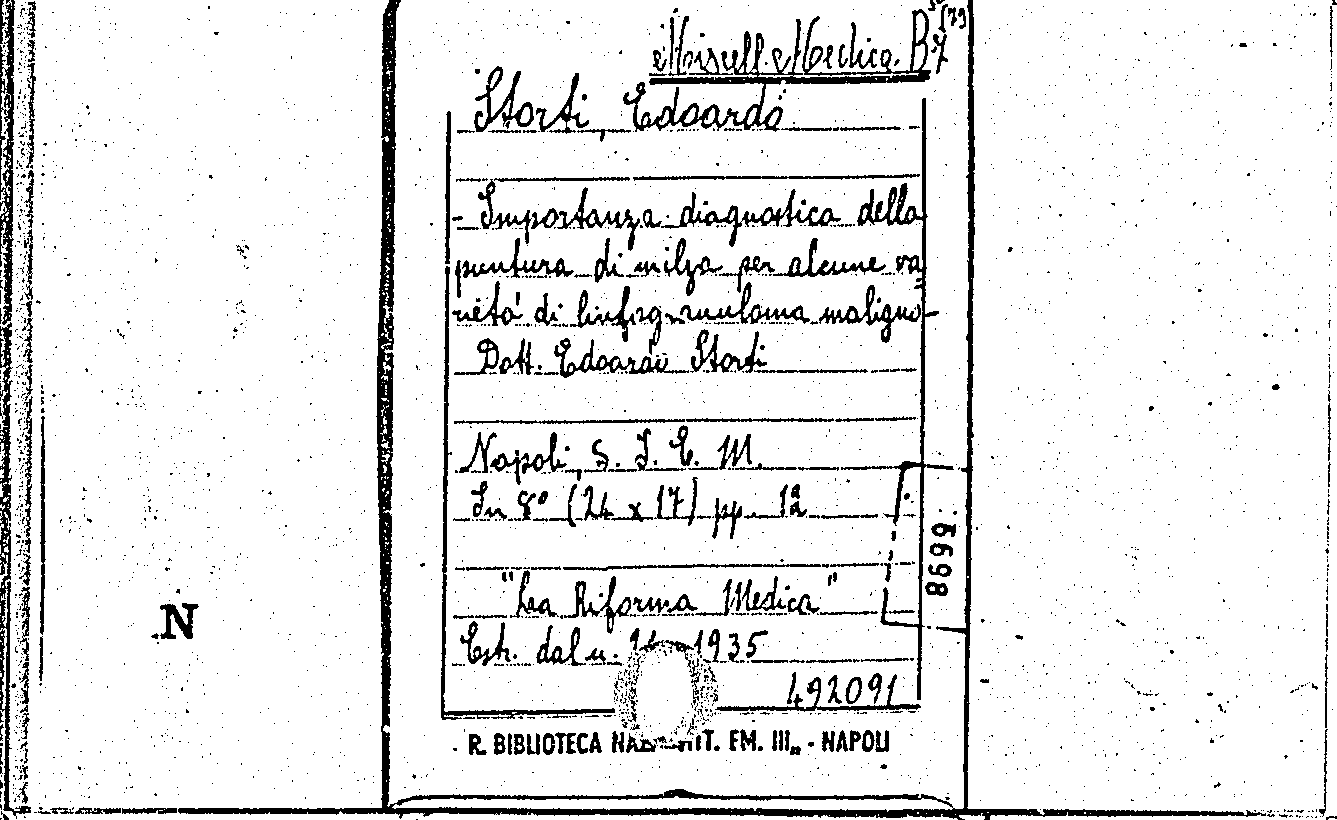 Miscell. Medica. B7
Storti, Edoardo
- Importanza diagnostica della
puntura di milza per alcune va
rietà di linfogranuloma maligno -
Dott. Edoardo Storti
Napoli, S. I. E. M.
In 8° (24 x 17) pp. 12
"La Riforma Medica"
Estr. dal n. 1935
492091
R. BIBLIOTECA NAZ. VITT. EM. III„ - NAPOLI
8699
N